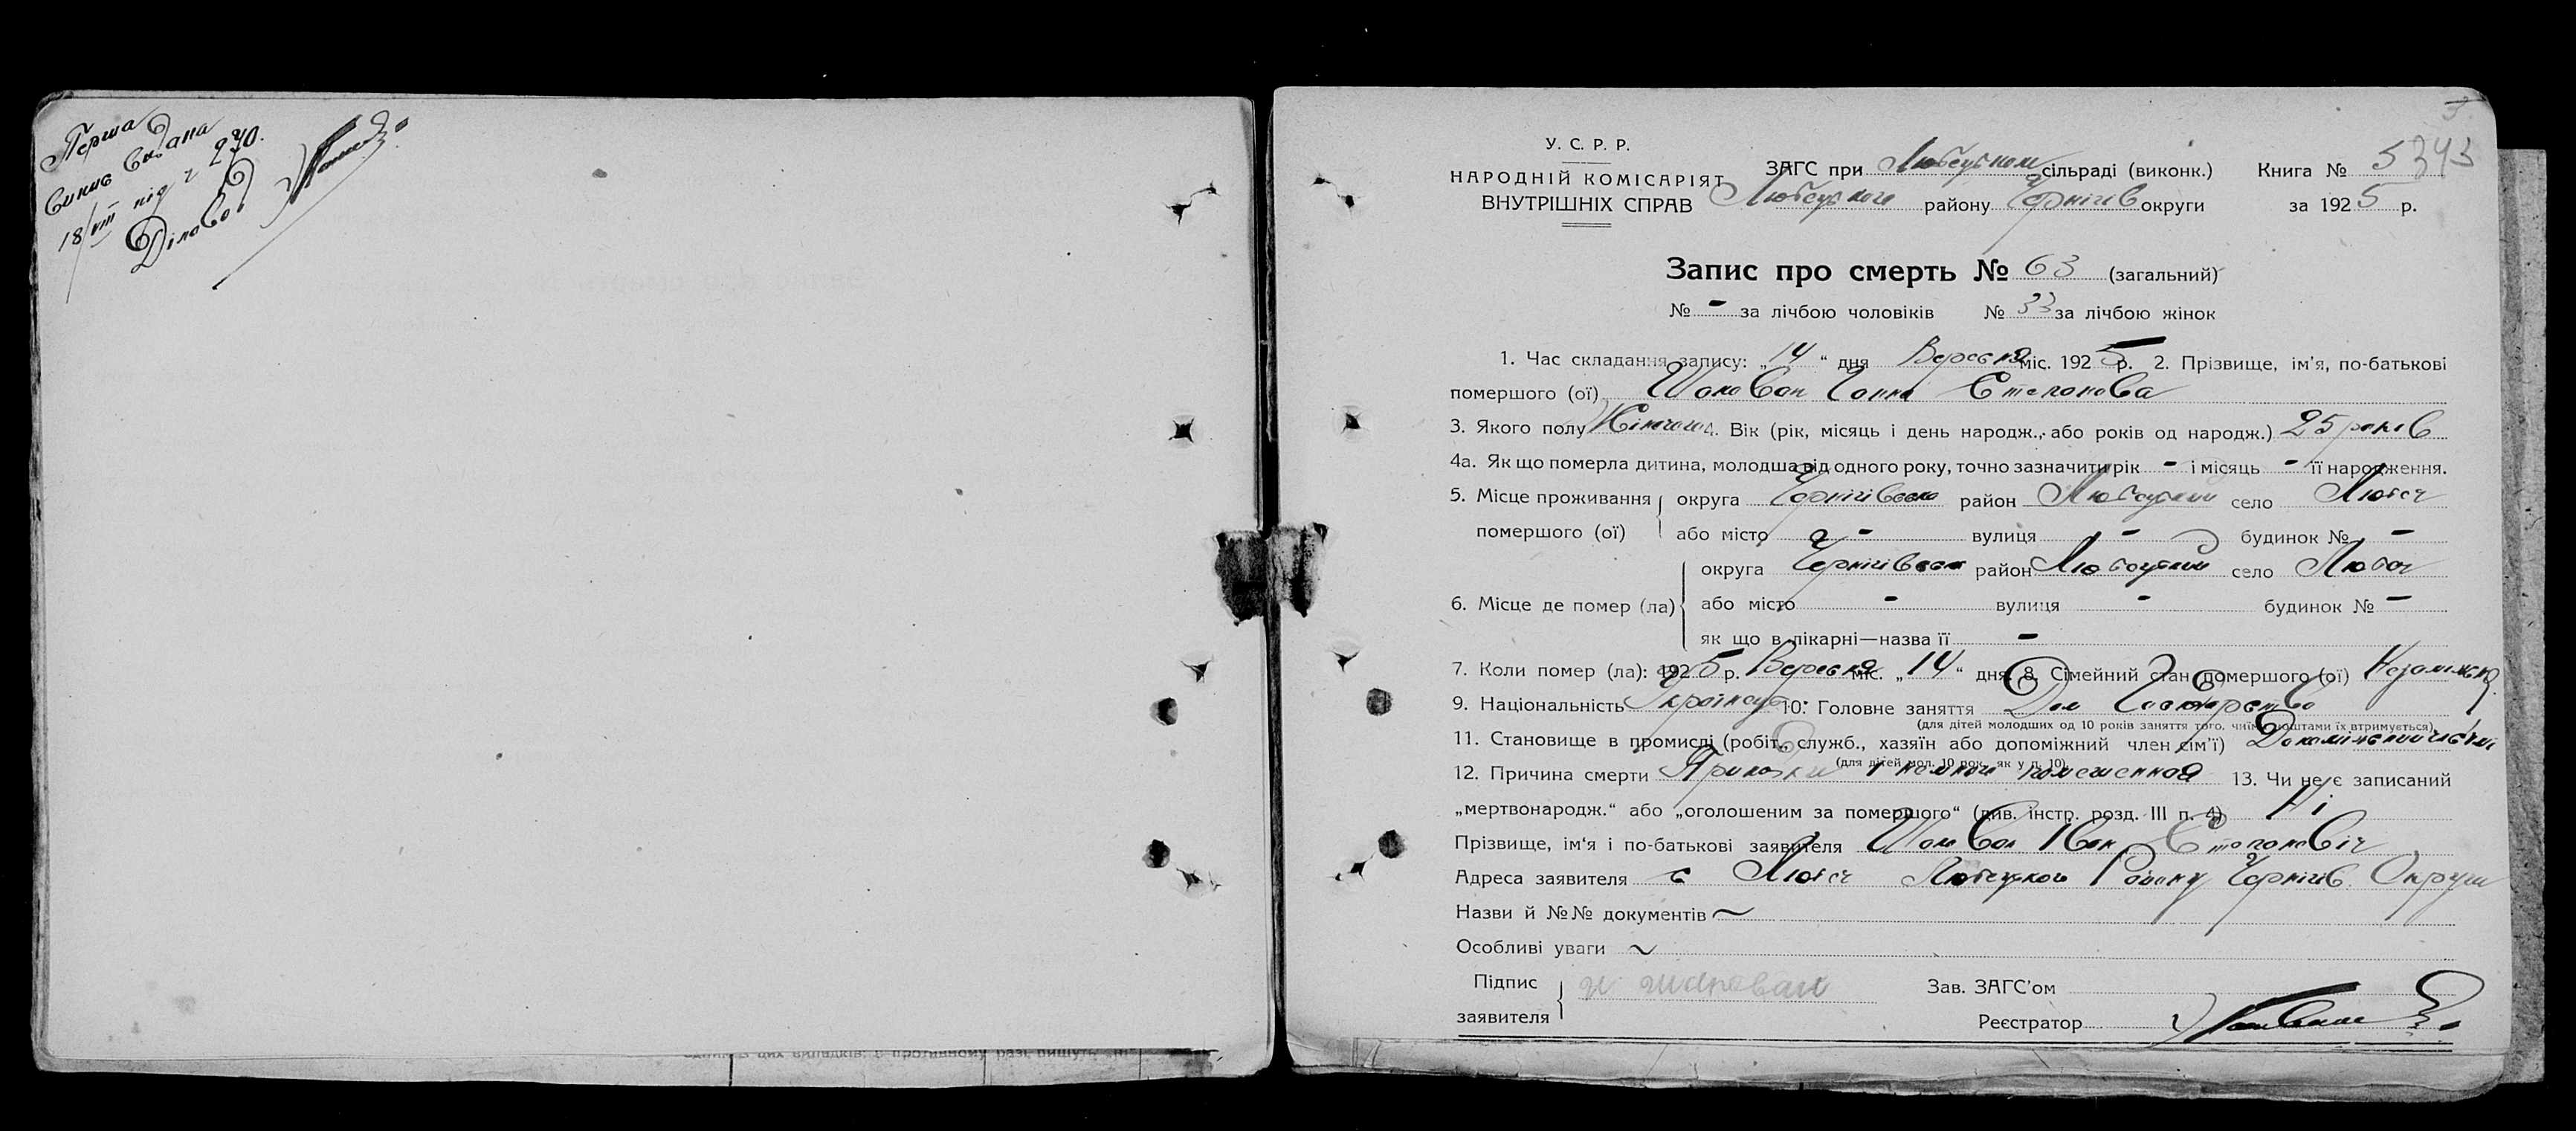 Перша
випис видана
18/VIII під ч 270.
Діловод
3
У. С. Р. Р.
НАРОДНІЙ КОМІСАРІЯТ
ВНУТРІШНІХ СПРАВ
ЗАГС при Любецьком сільраді (виконк.) Книга № 5343
Любецького району Чернігів округи за 1925 р.
Запис про смерть № 63 (загальний)
№ - за лічбою чоловіків № 33 за лічбою жінок
1. Час складання запису: „14“ дня Вересня міс. 1925 р. 2. Прізвище, ім'я, по-батькові
помершого (ої) Шаповал Ганна Степанова
3. Якого полу Жіночого 4. Вік (рік, місяць і день народж., або років од народж.) 25 років
4а. Як що померла дитина, молодша від одного року, точно зазначити рік - і місяць - її народження.
5. Місце проживання округа Чернігівська район Любецький село Любеч
помершого (ої) або місто - вулиця - будинок № -
округа Чернігівська район Любецький село Любеч
6. Місце де помер (ла) або місто - вулиця - будинок № -
як що в лікарні—назва її -
7. Коли помер (ла): 1925 р. Вересня міс. „14“ дня. 8. Сімейний стан помершого (ої) Незаміжня
9. Національність Українець 10. Головне заняття Дом Господарство
(для дітей молодших од 10 років заняття того, чиїми коштами їх втримується)
11. Становище в промислі (робіт., служб., хазяїн або допоміжний член сім'ї) Допоміжний
(для дітей мол. 10 рок. як у п. 10)
12. Причина смерти 13. Чи не є записаний
„мертвонародж.“ або „оголошеним за помершого“ (див. інстр. розд. III п. 4) Ні
Прізвище, ім'я і по-батькові заявителя Шаповал Іван Степановіч
Адреса заявителя с Любеч Любецького Району Чернігів. Округи
Назви й №№ документів ~
Особливі уваги ~
Підпис
заявителя и шаповал
Зав. ЗАГС'ом
Реєстратор